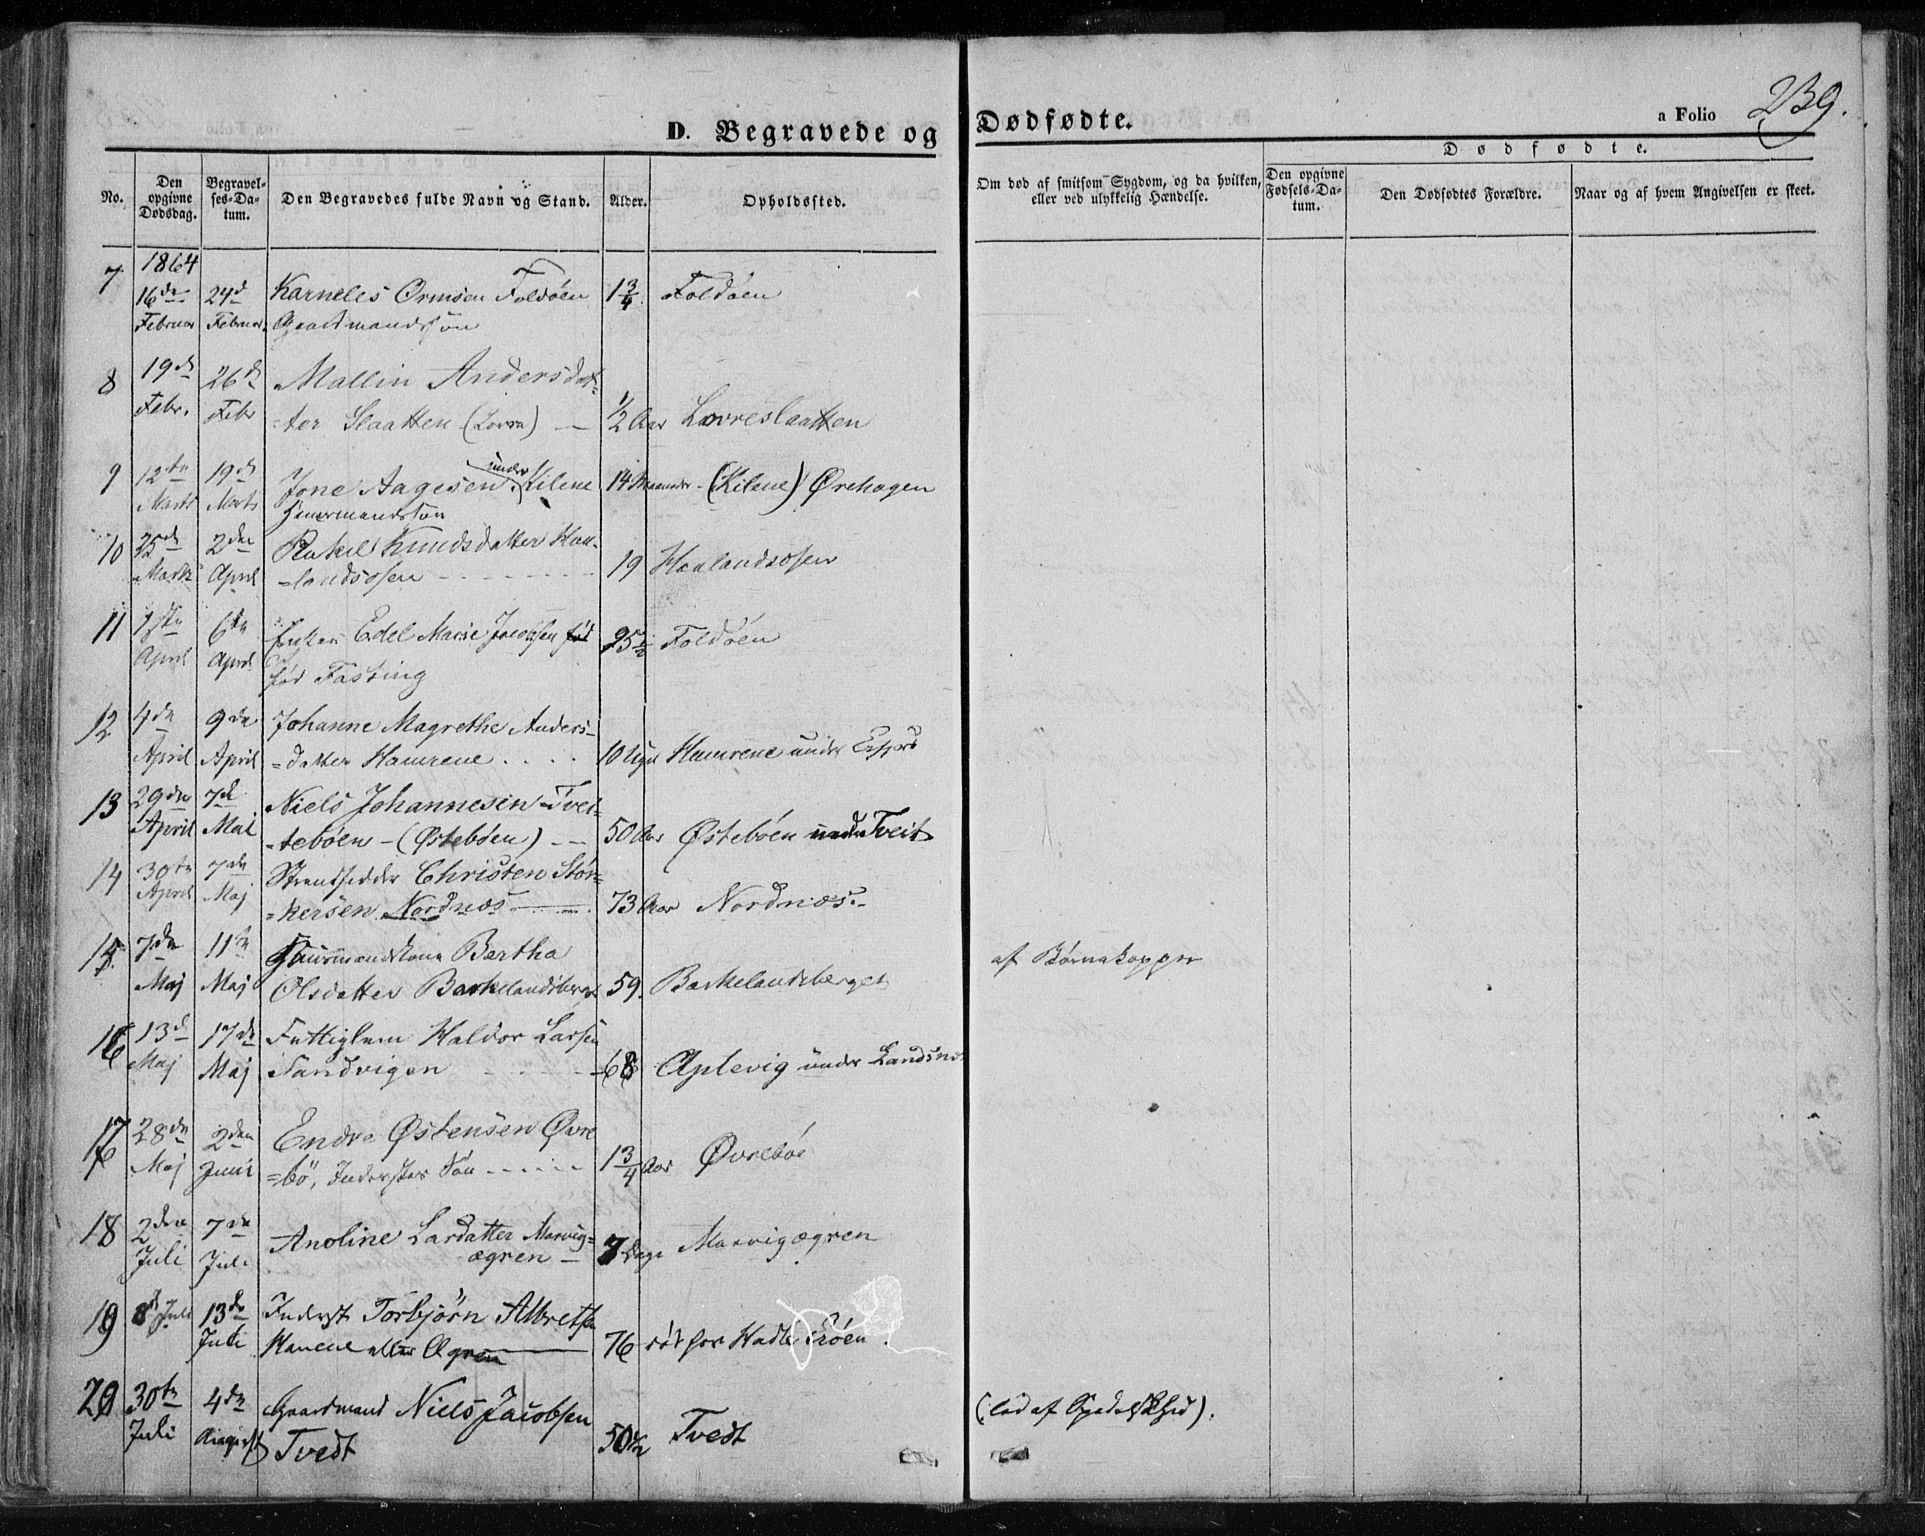 D. Begravede og Dødfødte.
a Folio 239.
No.
Den opgivne Dødsdag.
Begravelses-Datum.
Den Begravedes fulde Navn og Stand.
Alder.
Opholdssted.
Om død af smitsom Sygdom, og da hvilken, eller ved ulykkelig Hændelse.
Dødfødte.
Den opgivne Fødsels-Datum.
Den Dødfødtes Forældre.
Naar og af hvem Angivelsen er skeet.
1864
7 16de 24d Karneles Ormsen Foldøen 1 3/4 Foldøen
Februar Februar Gaardmandssøn
8 19d 26d Mallin Andersdat-
Febr. Febr =ter Slaatten (Lovra) — 1/2 Aar Lovreslaatten
9 12te 19d Jone Aagesen under Kilene 14 Maaneder (Kilene) Ørehagen
Marts Marts Huusmandssøn
10 25d 2den Rakel Knudsdatter Haa-
Marts April =landsosen 19 Haalandsosen
11 1ste 6te Enken Edel Marie Jacobsen fød 95 1/2 Foldøen
April April fød Fasting
12 4de 9de Johanne Magrethe Anders-
April April =datter Hamrene 10 Uger Hamrene under
13 29de 7de Niels Johannesen Tvei-
April Mai =tebøen - (Østebøen) 50 Aar Østebøen under Tveit
14 30te 7de Strandsidder Christen Stør=
April Maj =kersen Nordnæs 73 Aar Nordnæs
15 7de 11te Huusmandskone Bertha af Børnekopper
Maj Maj Olsdatter Barkelandsberget 59 Barkelandsberget
16 13d 17de Fattiglem Haldor Larsen
Maj Maj Sandvigen 68 Aplevig under
17 28de 2den Endre Østensen Øvre
Maj Juni =bö, Inderstes Søn 1 3/4 Aar Øvrebøe
18 2den 7de Anoline Larsdatter Marvig=
Juli Juli øgren — 7 Dage Marvigøgren
19 8d Juli 13de Inderst Torbjørn Albretsen
Juli eller Øgren 76
20 30te 4de Gaardmand Niels Jacobsen (led af Spedalskhed).
Juli August Tvedt 50 1/2 Tvedt